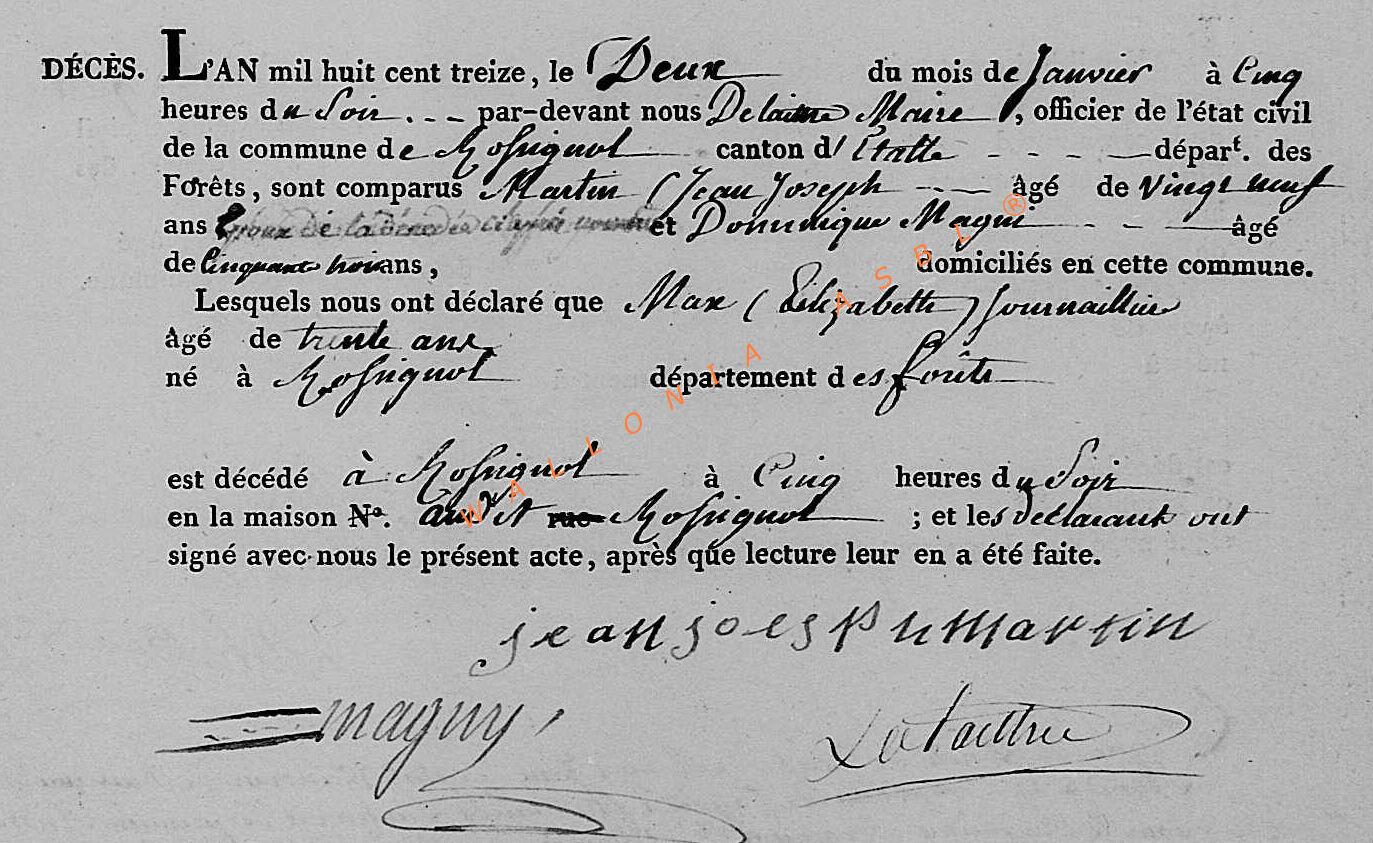 DÉCÈS. L'AN mil huit cent treize, le Deux du mois de Janvier à Cinq
heures du Soir . – – par-devant nous Delaittre Maire, officier de l'état civil
de la commune de Rossignol canton d' Etalle - - - — départ. des
Forêts, sont comparus Martin (Jean Joseph - - — âgé de vingt neuf
ans Epoux de la et Dominique Magni - - — âgé
de Cinquante trois ans, domiciliés en cette commune.
Lesquels nous ont déclaré que Max (Elizabette) Journaillier
âgé de trente ans
né à Rossignol département des forêts
est décédé à Rossignol à Cinq heures du Soir
en la maison No. rue Rossignol ; et les declarant ont
signé avec nous le présent acte, après que lecture leur en a été faite.
jean joesph martin
maguy
WALLONIA ASBL ®